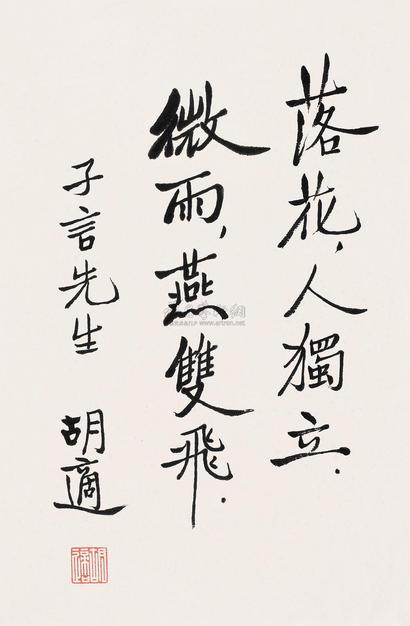 落花，人獨立．
微雨，燕雙飛．
子言先生
胡適
www.artron.net